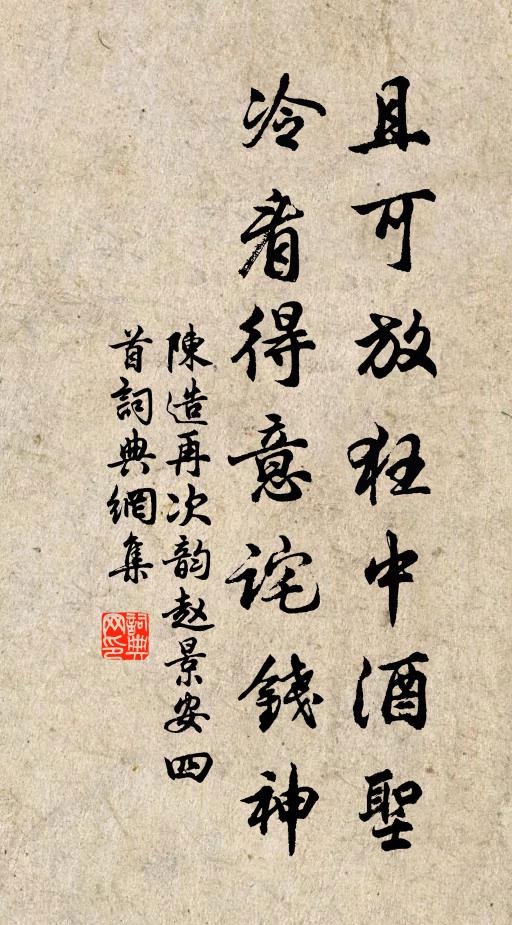 且可放狂中酒聖
冷看得意詫錢神
陳造再次韵赵景安四
首詞典網集
詞典网印